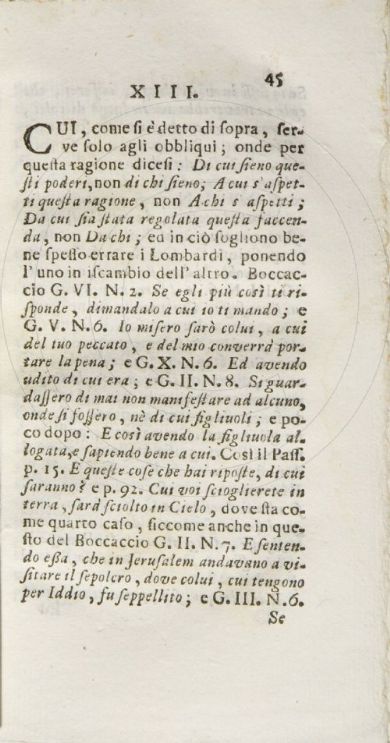 45
XIII.
CUI, come si è detto di sopra, ser-
ve solo agli obbliqui; onde per
questa ragione dicesi: Di cui sieno que-
sti poderi, non di chi sieno; A cui s'aspet-
ti questa ragione, non A chi s'aspetti;
Da cui sia stata regolata questa faccen-
da, non Da chi; ed in ciò sogliono be-
ne spesso errare i Lombardi, ponendo
l'uno in iscambio dell'altro. Boccac-
cio G. VI. N. 2. Se egli più così ti ri-
sponde, dimandalo a cui io ti mando; e
G. V. N. 6. Io misero sarò colui, a cui
del tuo peccato, e del mio converrà por-
tare la pena; e G. X. N. 6. Ed avendo
udito di cui era; e G. II. N. 8. Si guar-
dassero di mai non manifestare ad alcuno,
onde si fossero, nè di cui figliuoli; e po-
co dopo: E così avendo la figliuola al-
logata, e sapiendo bene a cui. Così il Pass.
p. 15. E queste cose che hai riposte, di cui
saranno? e p. 92. Cui voi scioglierete in
terra, sarà sciolto in Cielo, dove sta co-
me quarto caso, siccome anche in que-
sto del Boccaccio G. II. N. 7. E senten-
do essa, che in Jerusalem andavano a vi-
sitare il sepolcro, dove colui, cui tengono
per Iddio, fu seppellito; e G. III. N. 6.
Se